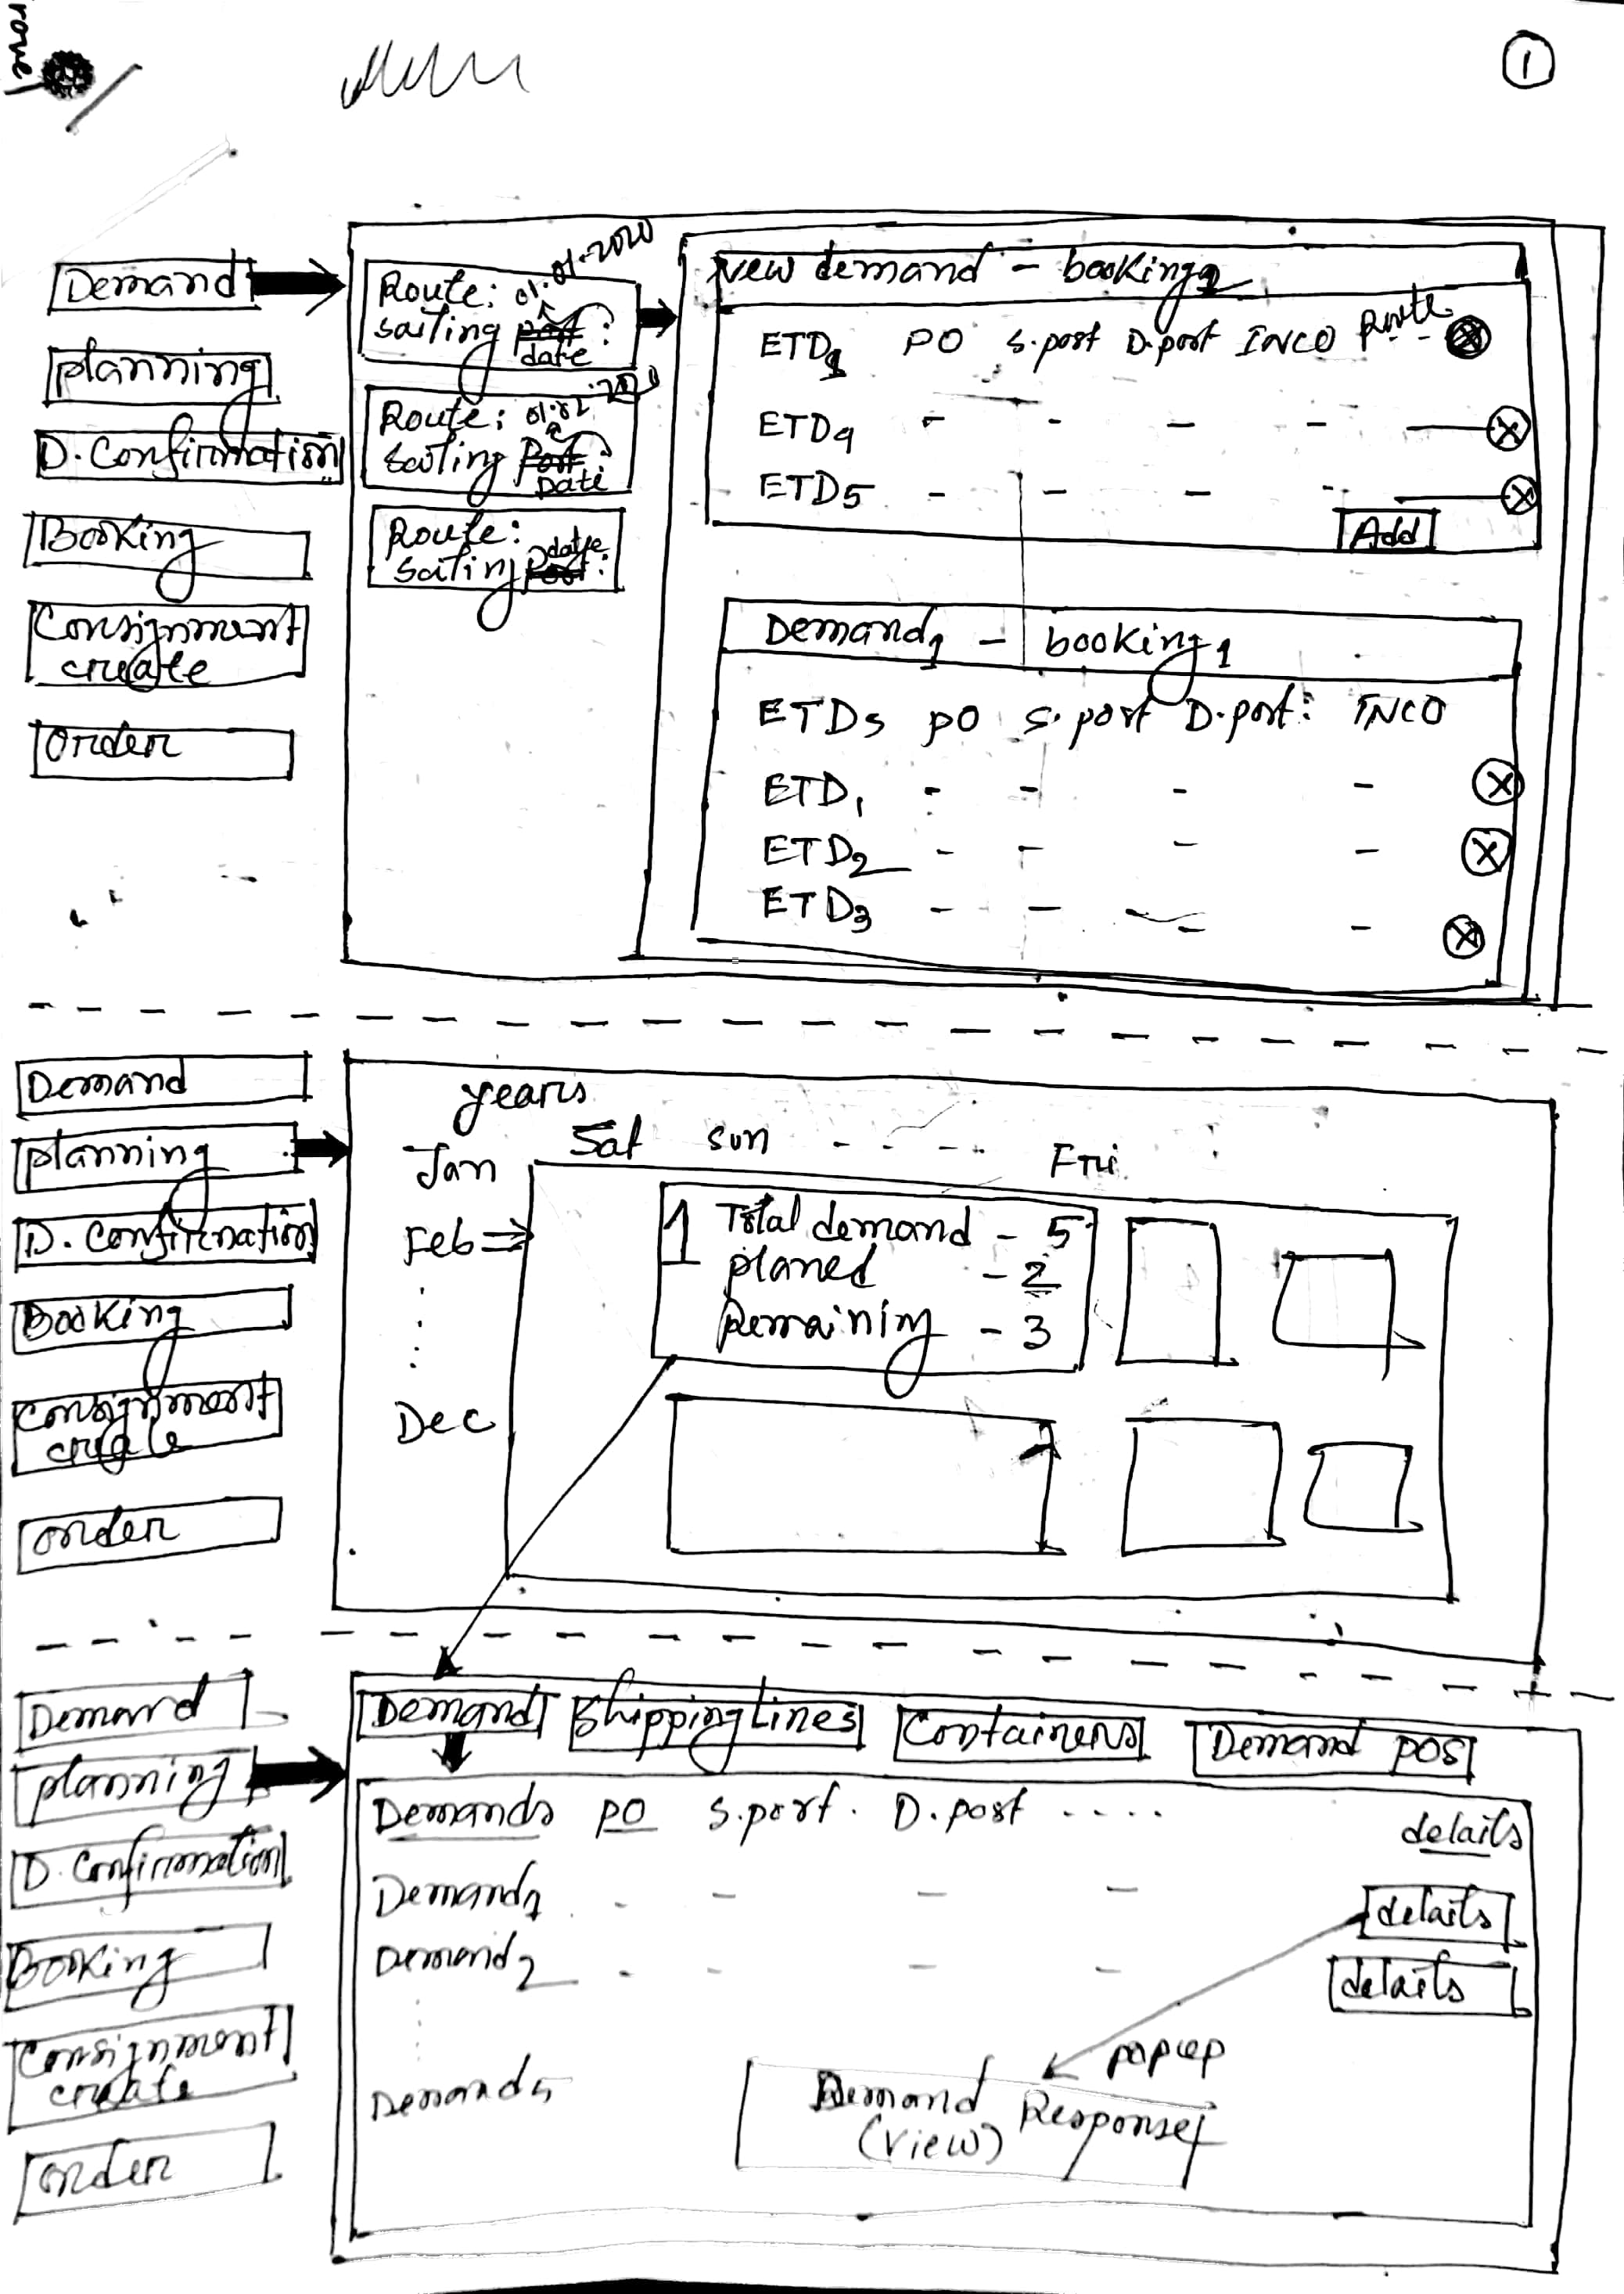 rove
1
Demand
planning
D. Confirmation
Booking
Consignment
create
Order
Route: 01.01-2020
sailing port :
date
Route: 01.02.2020
sailing Port :
Date
Route:
date
sailing port :
New demand - booking2
ETDs PO S.port D.port INCO Route
ETD4 - - - -
ETD5 - - - -
Add
Demand1 - booking1
ETDs PO S.port D.port: INCO
ETD1 - - - -
ETD2 - - - -
ETD3 - - - -
Demand
planning
D. Confirmation
Booking
Consignment
create
order
years
Sat sun - - - - Fri
Jan
Feb
Dec
1 Total demand - 5
planed - 2
Remaining - 3
Demand
planning
D. Confirmation
Booking
Consignment
create
order
Demand Shipping Lines Containers Demand POS
Demands PO S.port. D.port .... details
Demand1 - - - - details
Demand2 - - - - details
Demand5
popup
Demand Response
(View)